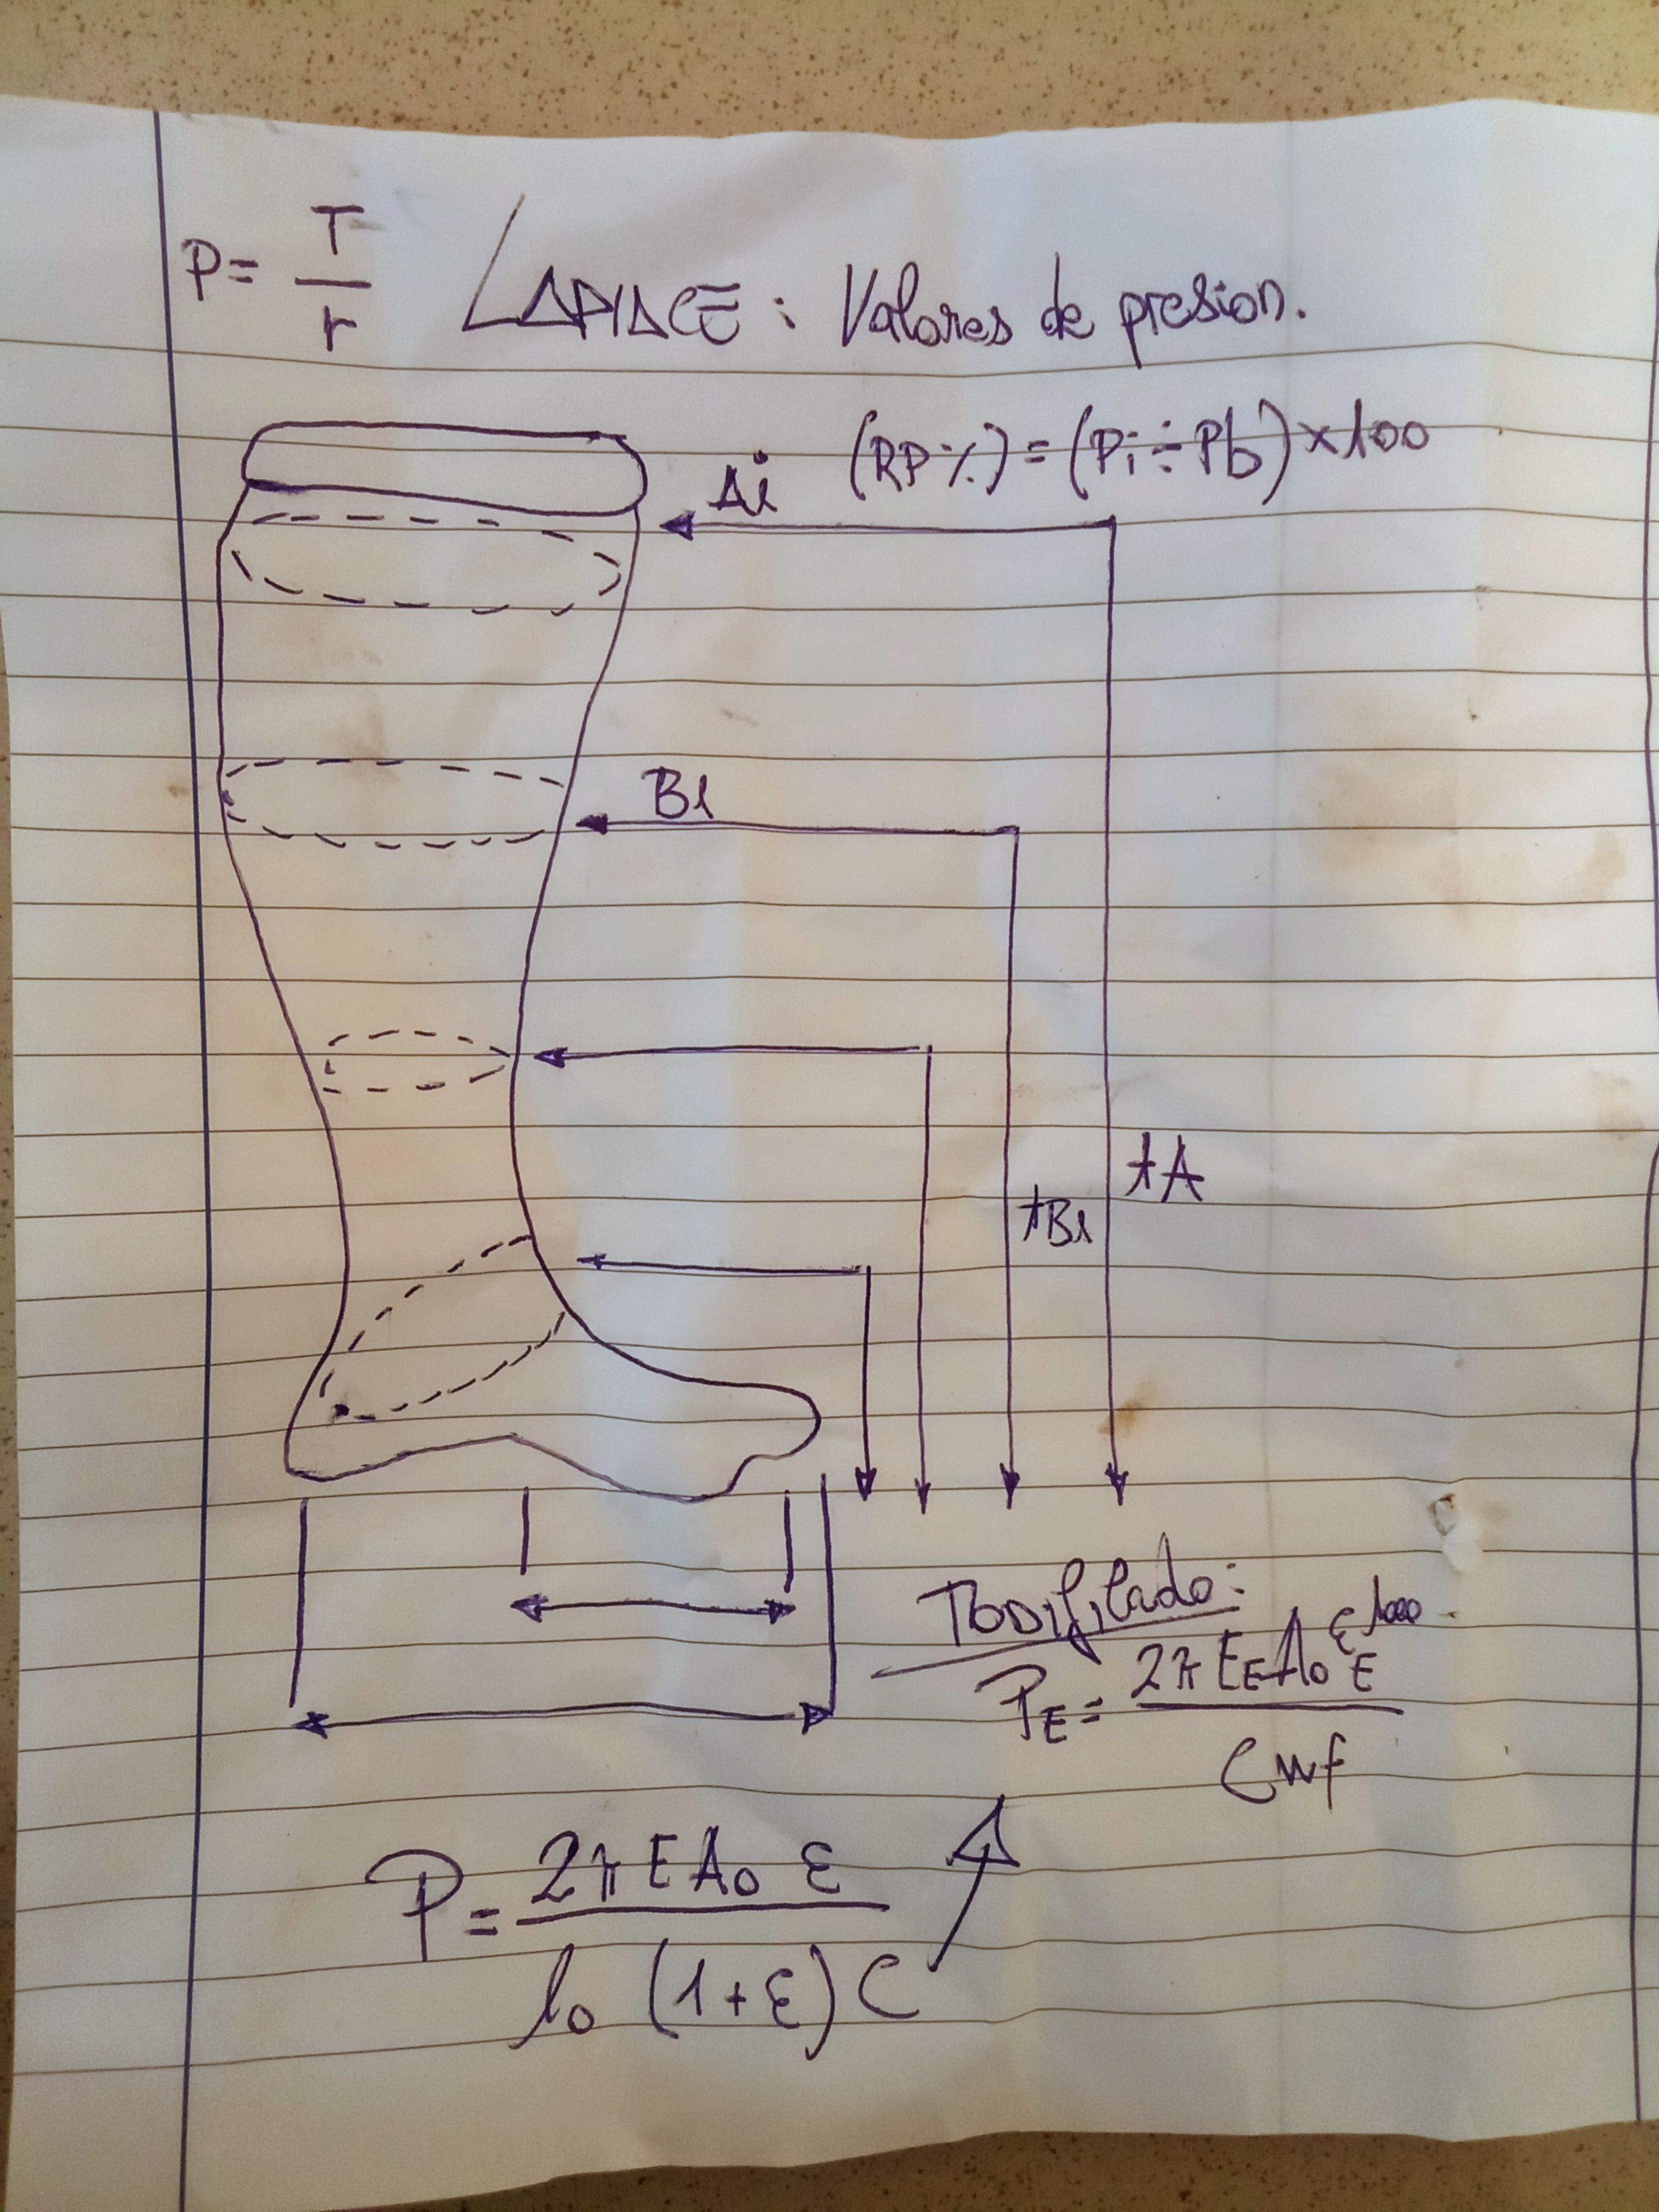 P = T/r LAPLACE : Valores de presion.
(RP%) = (Pi ÷ Pb) × 100
Ai
B1
tA
tB1
Modifilado:
PE = 2π EE A0 εE 1000 / Cwf
P = 2π E A0 ε / l0 (1+ε) C